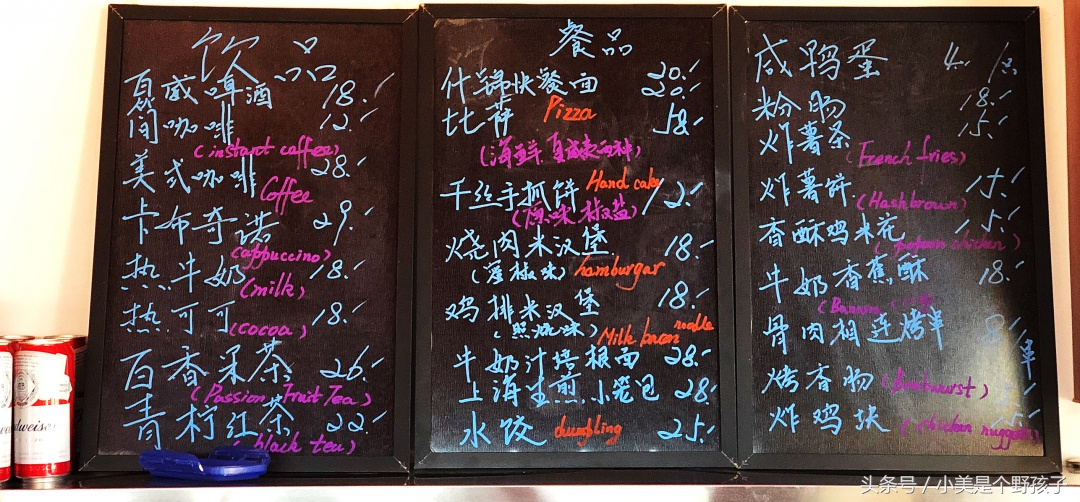 饮品
百威啤酒 18.-
简咖啡 12.-
(instant coffee)
美式咖啡 28.-
Coffee
卡布奇诺 29.-
cappuccino)
热牛奶 18.-
(milk)
热可可 18.-
(cocoa)
百香果茶 26.-
(Passion Fruit Tea)
青柠红茶 22.-
(black tea)
餐品
什锦快餐面 20.-
比萨 Pizza 58.-
千丝手抓饼 Hand cake 12.-
(原味 椒盐)
烧肉米汉堡 18.-
hamburgar
鸡排米汉堡 18.-
(照烧味)
Milk bacon noodle
牛奶汁培根面 28.-
上海生煎小笼包 28.-
水饺 dumbling 25.-
咸鸭蛋 4.-/只
粉肠 18.-
炸薯条 15.-
(French fries)
炸薯饼 15.-
(Hashbrown)
香酥鸡米花 15.-
(popcorn chicken)
牛奶香蕉酥 18.-
骨肉相连烤串 8.-/串
烤香肠
炸鸡块
(chicken nuggets)
Budweiser
头条号 / 小美是个野孩子